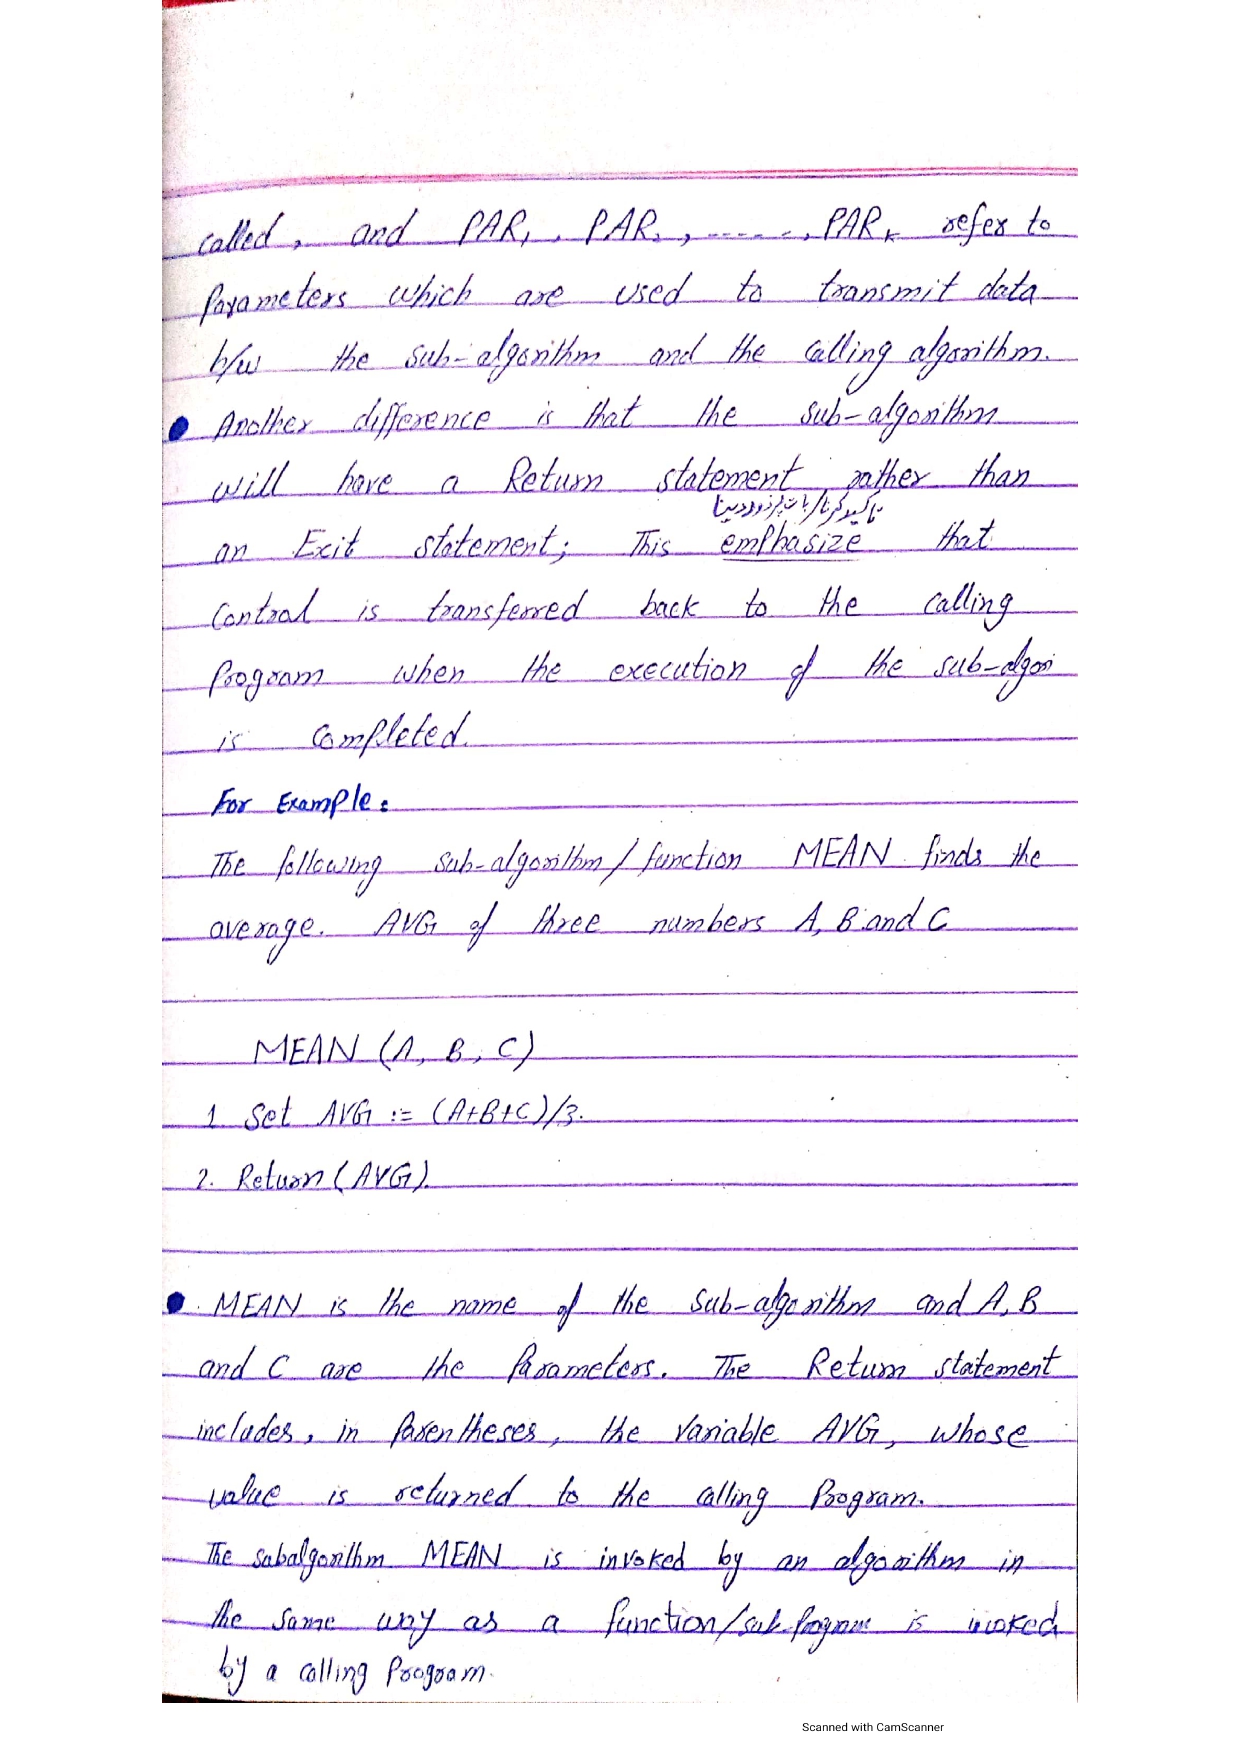 called, and PAR₁, PAR₂, ------, PARₖ refer to
Parameters which are used to transmit data
b/w the sub-algorithm and the calling algorithm.
Another difference is that the sub-algorithm
will have a Return statement, rather than
تاکید کرنا/بات پر زور دینا
an Exit statement; This emphasize that
Control is transferred back to the calling
Program when the execution of the sub-algori
is Completed.
For Example:
The following sub-algorithm/function MEAN finds the
average. AVG of three numbers A, B and C
MEAN (A, B, C)
1. Set AVG := (A+B+C)/3.
2. Return (AVG).
MEAN is the name of the Sub-algorithm and A, B
and C are the Parameters. The Return statement
includes, in Parentheses, the Variable AVG, whose
value is returned to the calling Program.
The subalgorithm MEAN is invoked by an algorithm in
the same way as a function/sub-Program is invoked
by a calling Program.
Scanned with CamScanner